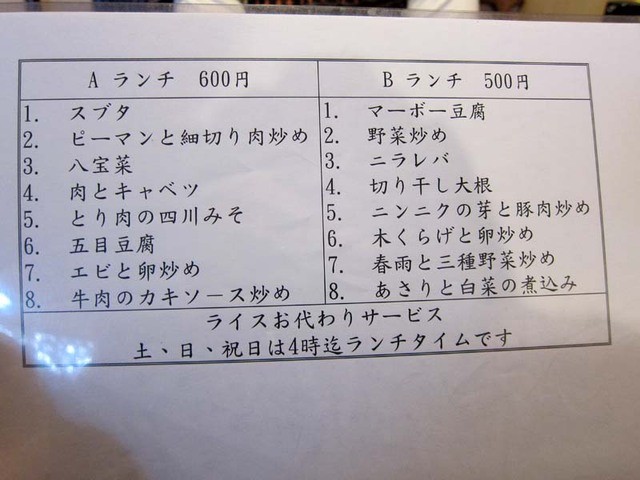 A ランチ 600円
1. スブタ
2. ピーマンと細切り肉炒め
3. 八宝菜
4. 肉とキャベツ
5. とり肉の四川みそ
6. 五目豆腐
7. エビと卵炒め
8. 牛肉のカキソース炒め
B ランチ 500円
1. マーボー豆腐
2. 野菜炒め
3. ニラレバ
4. 切り干し大根
5. ニンニクの芽と豚肉炒め
6. 木くらげと卵炒め
7. 春雨と三種野菜炒め
8. あさりと白菜の煮込み
ライスお代わりサービス
土、日、祝日は4時迄ランチタイムです